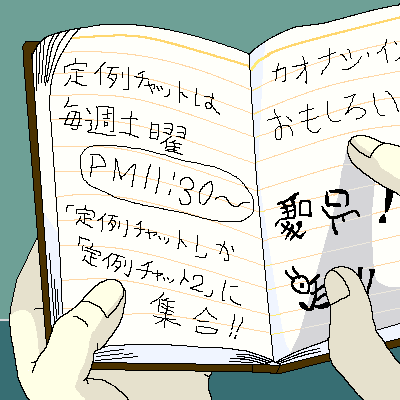 定例チャットは
毎週土曜
PM11:30〜
「定例チャット1」か
「定例チャット2」に
集合!!
カオナシ・イン
おもしろい